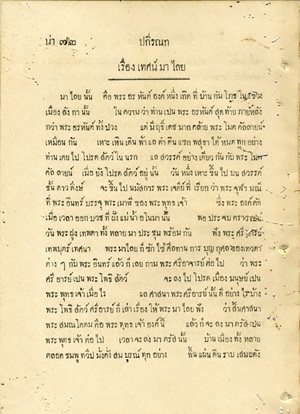 น่า ๗๒ ปกีรณก
เรื่อง เทศน์ มา ไลย
มา ไลย นั้น คือ พระ อรหันต์ องค์ หนึ่ง เกิด ที่ บ้าน กัน โภช ใน
เมือง ลัง กา นั้น ใน ความ ว่า ท่าน เปน พระ อรหันต์ สุด ท้าย ภายหลัง
กว่า พระ อรหันต์ ทั้ง ปวง แต่ มี ฤทธิ์ เดช มาก คล้าย พระ โมค คัลลาน์
เหมือน กัน คือ เหาะ เหิน เดิน ฟ้า แล ดำ ดิน แซก พสุธา ได้ หมด ทุก อย่าง
ท่าน เคย ไป โปรด สัตว์ ใน นรก แล สวรรค์ อย่าง เดียว กัน กับ พระ โมค
คัล ลาน์ เมื่อ ยัง โปรด สัตว์ อยู่ นั้น วัน หนึ่ง เหาะ ขึ้น ไป บน สวรรค์
ชั้น ดาว ดึงษ์ จะ ขึ้น ไป นมัสการ พระ เจดีย์ ที่ เรียก ว่า พระ จุฬา มณี
ที่ พระ อินทร์ บรรจุ พระ เมาฬี ของ พระ พุทธ เจ้า ซึ่ง พระ องค์ ตัด
เมื่อ เวลา ออก บวช ที่ ฝั่ง แม่ น้ำ อโนมา นั้น พอ ประจบ คราว
วัน พระ ฝูง เทพดา ทั้ง หลาย มา ประชุม พร้อม กัน ฟัง พระ ศรีอารย์
เทพบุตร์ เทศนา พระ มา ไลย ก็ ซัก ไซ้ ไต่ถาม การ บุญ กุศล ของ เทวดา
ต่าง ๆ กับ พระ อินทร์ แล้ว ก็ เลย ถาม พระ ศรีอารย์ ต่อ ไป ว่า พระ
ศรี อารย์ เปน พระ โพธิ สัตว์ จะ ลง ไป โปรด เมือง มนุษย์ เปน
พระ พุทธ เจ้า เมื่อ ไร แล ศาสนา พระ ศรีอารย์ นั้น ดี อย่าง ไร บ้าง
พระ โพธิ สัตว์ ศรีอารย์ ก็ เล่า เรื่อง ให้ พระ มา ไลย ฟัง ว่า สิ้น ศาสนา
พระ สมณโคดม คือ พระ พุทธ เจ้า องค์ นี้ แล้ว ก็ จะ ลง มา ตรัส เปน
พระ พุทธ เจ้า ต่อ ไป เวลา จะ ลง มา ตรัส นั้น บ้าน เมือง ทั้ง หลาย
ตลอด ชมพู ทวีป มั่ง คั่ง สม บูรณ์ ทุก อย่าง พื้น แผ่น ดิน ราบ เสมอ